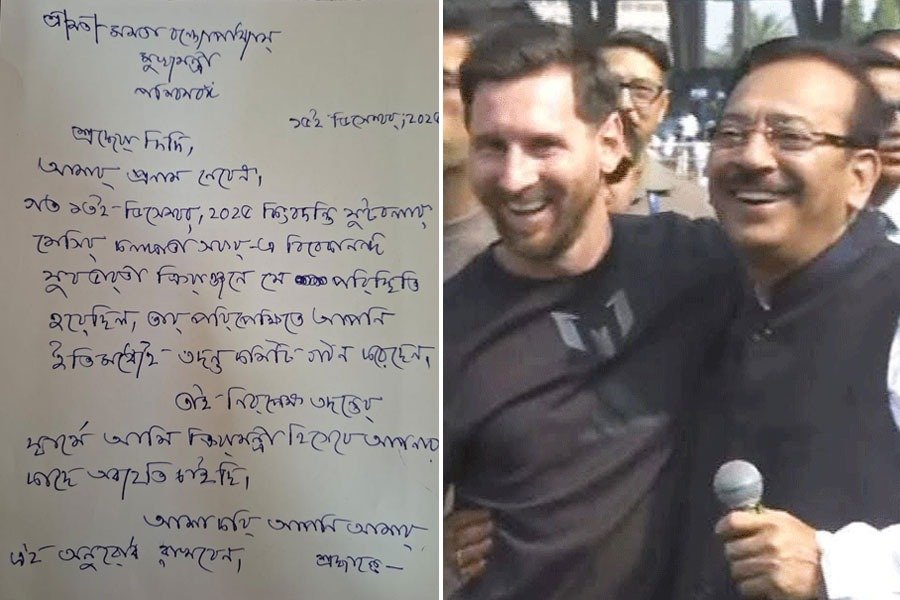 শ্রীমতী মমতা বন্দ্যোপাধ্যায়
মুখ্যমন্ত্রী
পশ্চিমবঙ্গ
১৫ই ডিসেম্বর, ২০২৫
শ্রদ্ধেয় দিদি,
আমার প্রণাম নেবেন,
গত ১৩ই ডিসেম্বর, ২০২৫ কিংবদন্তি ফুটবলার
মেসির কলকাতা সফর-এ বিবেকানন্দ
যুবভারতী ক্রীড়াঙ্গনে যে পরিস্থিতি
হয়েছিল, তার পরিপ্রেক্ষিতে আপনি
ইতিমধ্যেই তদন্ত কমিটি গঠন করেছেন,
তাই নিরপেক্ষ তদন্তের
স্বার্থে আমি ক্রীড়ামন্ত্রী হিসেবে আপনার
কাছে অব্যাহতি চাইছি,
আশা করি আপনি আমার
এই অনুরোধ রাখবেন, শ্রদ্ধান্তে —